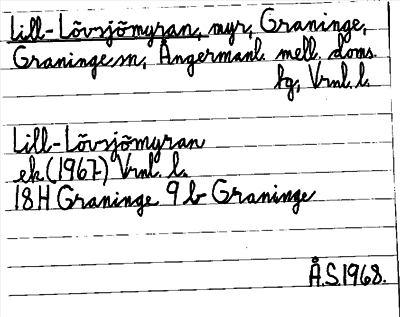 Lill-Lövsjömyran, myr, Graninge,
Graninge sn, Ångermanl. mell. doms.
fg, Vrnl. l.
Lill-Lövsjömyran
ek (1967) Vrnl. l.
18H Graninge 9 b Graninge
Å.S. 1968.